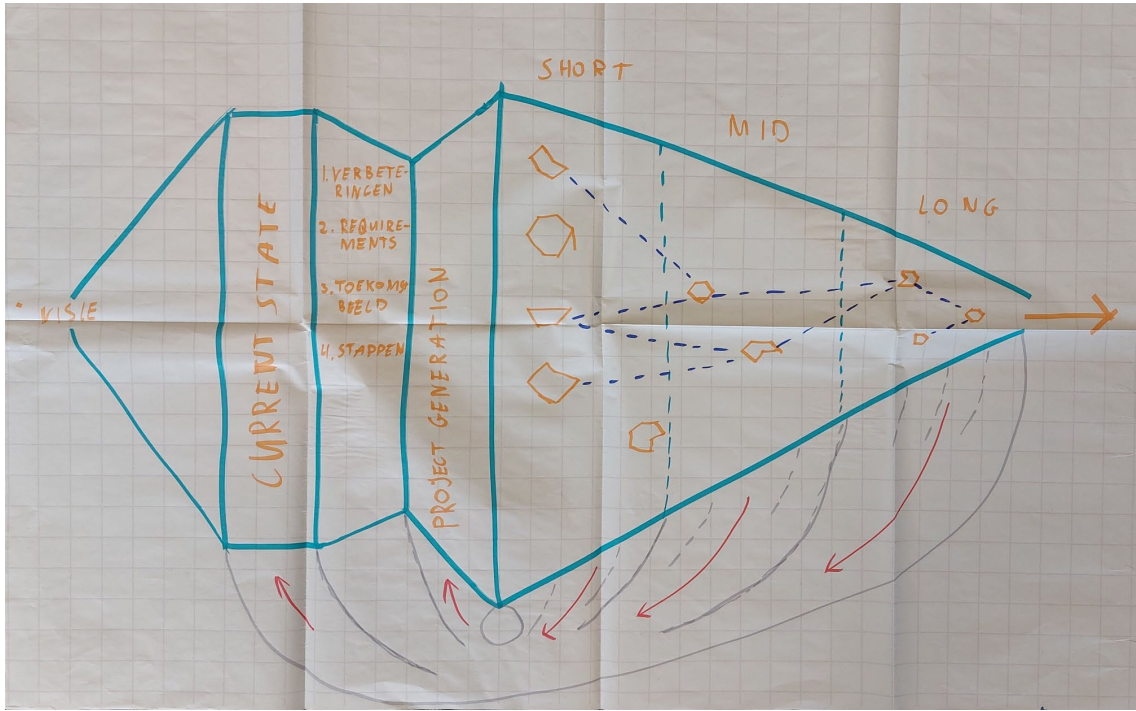 SHORT
MID
LONG
VISIE
CURRENT STATE
1. VERBETE-
RINGEN
2. REQUIRE-
MENTS
3. TOEKOMS
BEELD
4. STAPPEN
PROJECT GENERATION